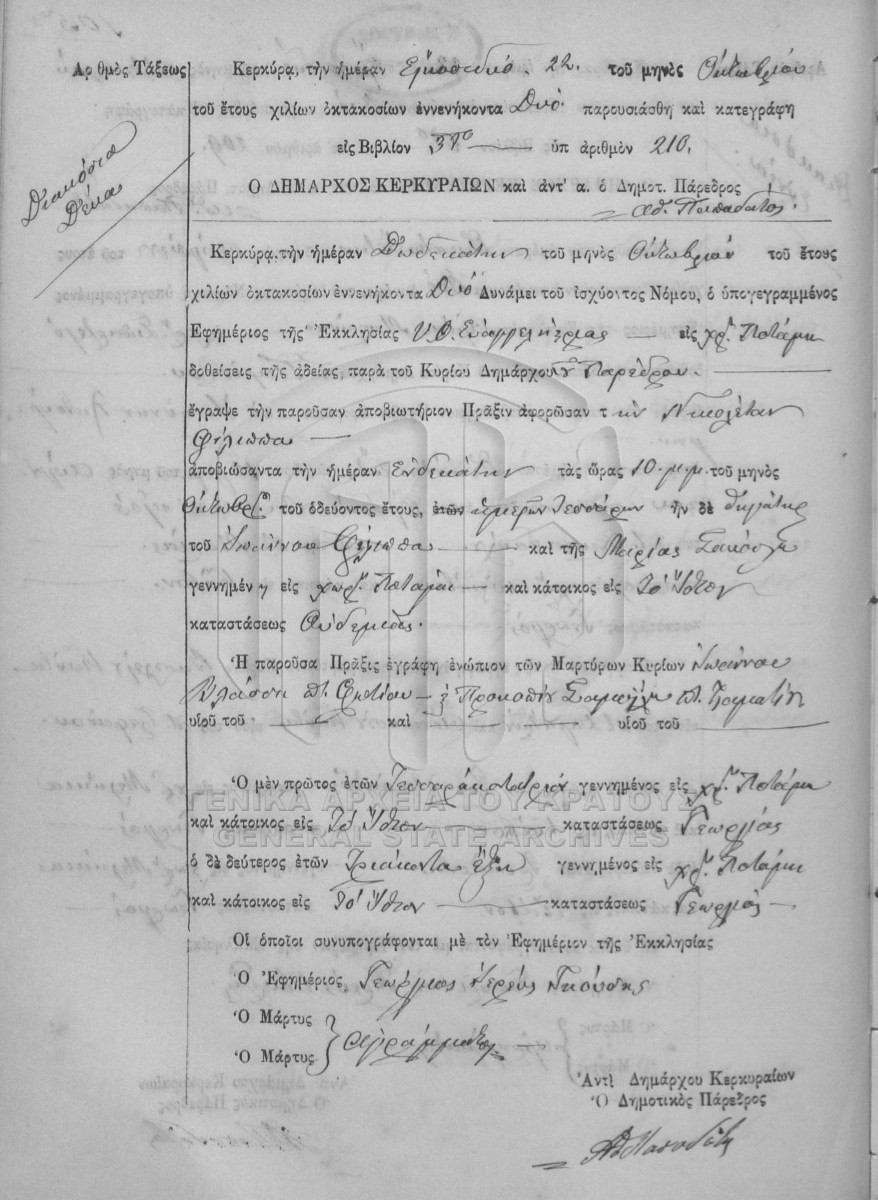 Αριθμὸς Τάξεως
Διακόσια
Δέκα
Κερκύρᾳ, τὴν ἡμέραν Εἰκοσιδύο. 22. τοῦ μηνὸς Ὀκτωβρίου
τοῦ ἔτους χιλίων ὀκτακοσίων ἐννενήκοντα Δυό. παρουσιάσθη καὶ κατεγράφη
εἰς Βιβλίον ὑπ ἀριθμὸν 210.
Ο ΔΗΜΑΡΧΟΣ ΚΕΡΚΥΡΑΙΩΝ καὶ ἀντ' α. ὁ Δημοτ. Πάρεδρος
Αθ. Παπαδάτος.
Κερκύρᾳ, τὴν ἡμέραν Δωδεκάτην τοῦ μηνὸς Ὀκτωβρίου τοῦ ἔτους
χιλίων ὀκτακοσίων ἐννενήκοντα Δυό Δυνάμει τοῦ ἰσχύοντος Νόμου, ὁ ὑπογεγραμμένος
Ἐφημέριος τῆς Ἐκκλησίας Υ. Θ. Εὐαγγελιστρίας εἰς χρ. Ποτάμι
δοθείσεις τῆς ἀδείας, παρὰ τοῦ Κυρίου Δημάρχου Παρέδρου.
ἔγραψε τὴν παροῦσαν ἀποβιωτήριον Πρᾶξιν ἀφορῶσαν τ ὴν Νικολέταν
Φίλιππα
ἀποβιώσαντα τὴν ἡμέραν Ἑνδεκάτην τὰς ὥρας 10. μ.μ. τοῦ μηνὸς
Ὀκτωβρ. τοῦ ὁδεύοντος ἔτους, ἐτῶν ἡμερῶν Τεσσάρων ἦν δὲ θυγάτηρ
τοῦ Ἰωάννου Φίλιππα καὶ τῆς Μαρίας
γεννημέν η εἰς χωρ. Ποτάμι καὶ κάτοικος εἰς Τὸ Ἴδιον
καταστάσεως Οὐδεμιᾶς.
Ἡ παροῦσα Πρᾶξις ἐγράφη ἐνώπιον τῶν Μαρτύρων Κυρίων Ἰωάννου
Βλάσση πτ. Φωτίου Προκοπίου πτ. Σταματίου
υἱοῦ τοῦ καὶ υἱοῦ τοῦ
Ὁ μὲν πρῶτος ἐτῶν Τεσσαράκοντατριῶν γεννημένος εἰς χρ. Ποτάμι
καὶ κάτοικος εἰς Τὸ Ἴδιον καταστάσεως Γεωργός
ὁ δὲ δεύτερος ἐτῶν Τριάκοντα ἕξη γεννημένος εἰς χρ. Ποτάμι
καὶ κάτοικος εἰς Τὸ Ἴδιον καταστάσεως Γεωργός
Οἱ ὁποῖοι συνυπογράφονται μὲ τὸν Ἐφημέριον τῆς Ἐκκλησίας
Ὁ Ἐφημέριος Γεώργιος Ἱερεύς Γκούσης
Ὁ Μάρτυς
Ὁ Μάρτυς
Ἀγράμματοι
Ἀντὶ Δημάρχου Κερκυραίων
Ὁ Δημοτικὸς Πάρεδρος
Αθ Παπαδάτος
ΓΕΝΙΚΑ ΑΡΧΕΙΑ ΤΟΥ ΚΡΑΤΟΥΣ
GENERAL STATE ARCHIVES